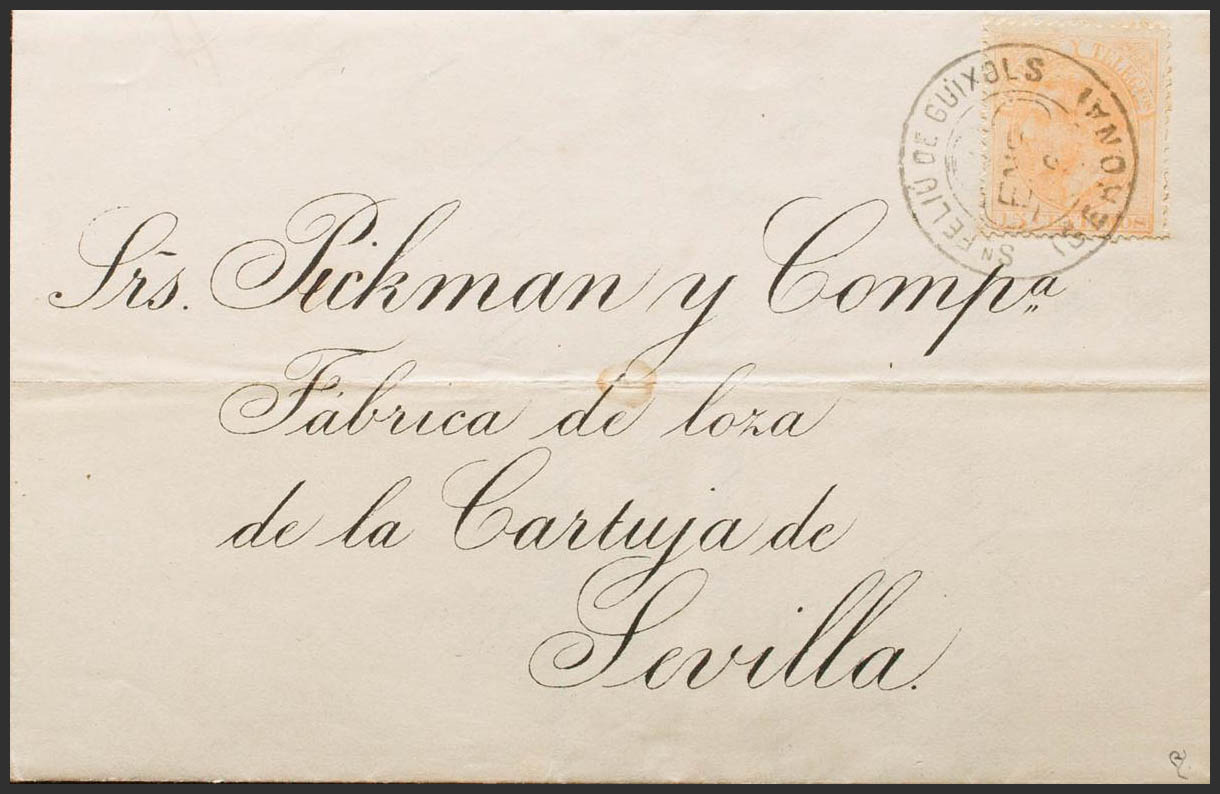 Y TELEGS
Sn FELIÚ DE GUIXOLS
(GERONA)
ENE
Srs. Pickman y Compª
Fábrica de loza
de la Cartuja de
Sevilla.